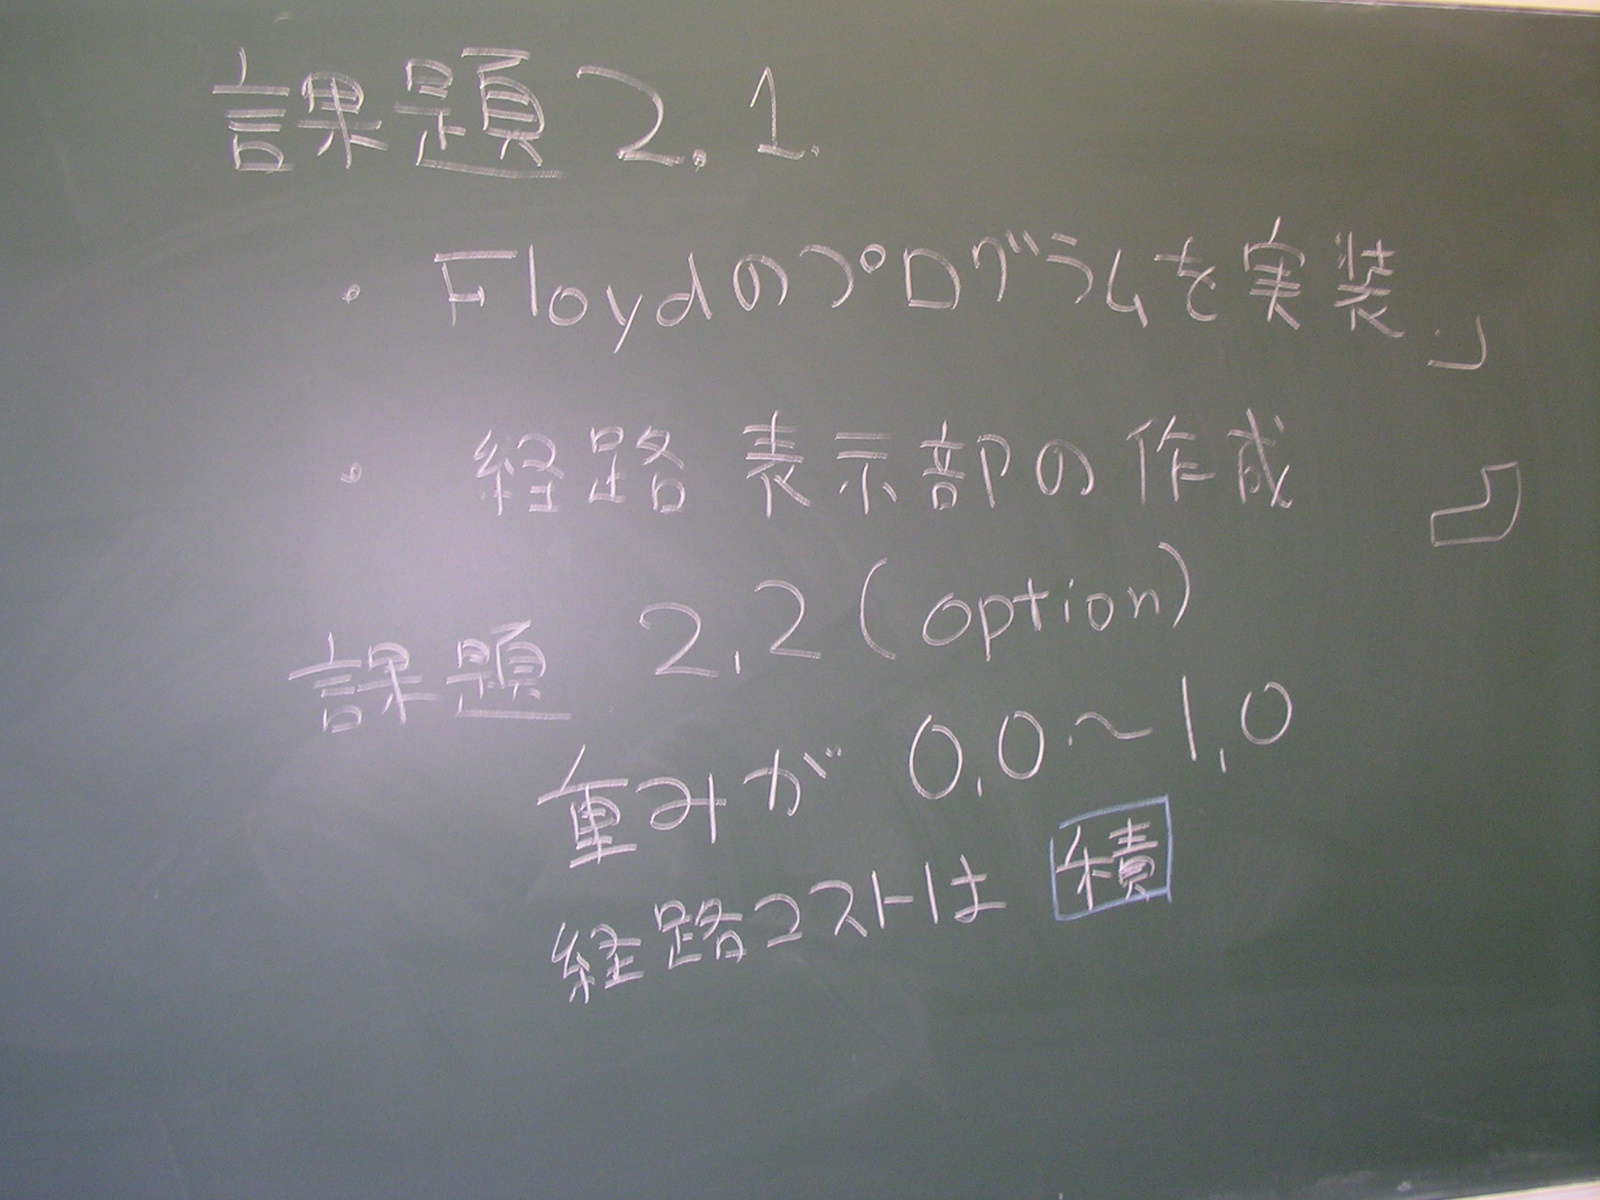 課題 2.1.
・ Floydのプログラムを実装.
・ 経路表示部の作成
課題 2.2 (option)
重みが 0.0～1.0
経路コストは 積